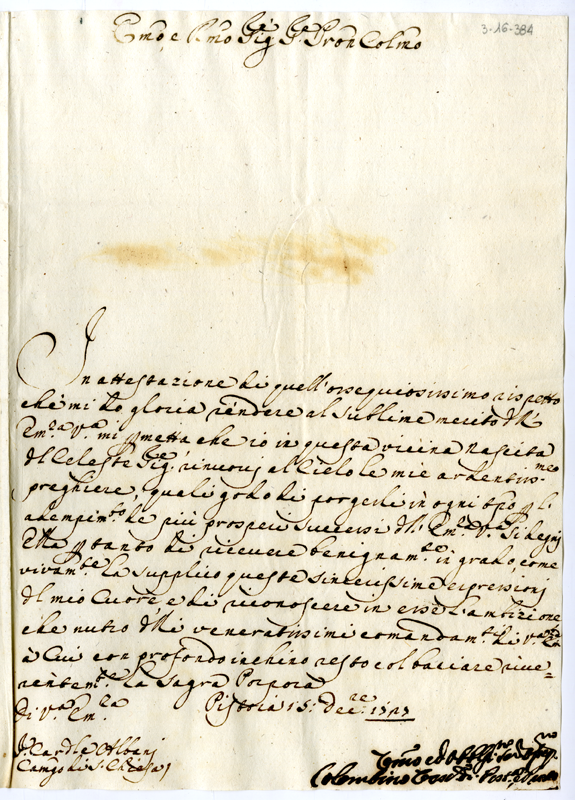 3-16-384
Emo, e Rmo Sig.re Sig.re Pron Colmo
In attestazione di quell'ossequiosissimo rispetto
che mi dò gloria rendere al sublime merito dell'
Em.za V.ra mi permetta che io in questa vicina Nascita
del Celeste Sig.re rinuovi al Cielo le mie ardentissme
preghiere, quali godo di porgerli in ogni tpo per l'
adempim.to de più prosperi successi dell' Em.za V.ra Si degni
Ella per tanto di ricevere benignam.te in grado, come
vivam.te la supplico queste sincerissime espressioni
del mio Cuore, e di riconoscere in esse l'ambizione
che nutro delli veneratissimi comandam.ti di V.ra Em.za
à Cui con profondo inchino resto col bacciare rive=
rentem.te la Sagra Porpora
Di V.ra Em.za Pistoia 15: Dec.re
Sr. Cardle Albani
Camgo di S. Chiesa
Colombino